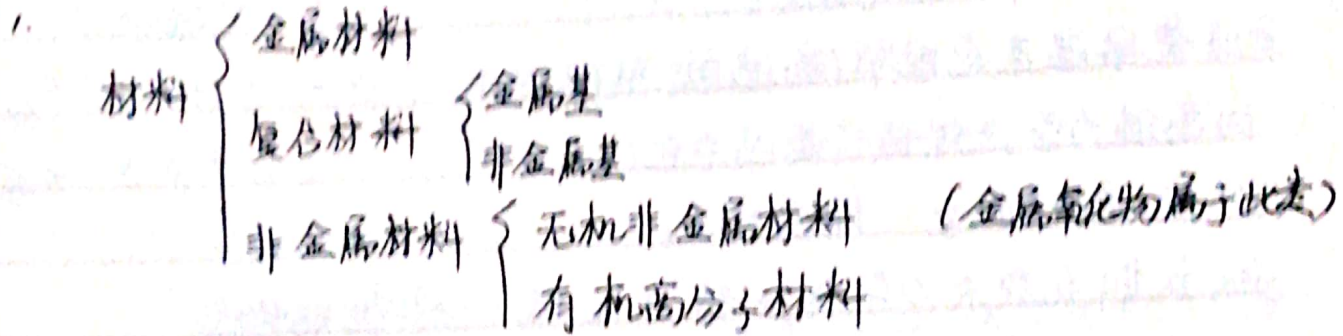 1.
金属材料
材料
复合材料
金属基
非金属基
非金属材料
无机非金属材料 (金属氧化物属于此类)
有机高分子材料